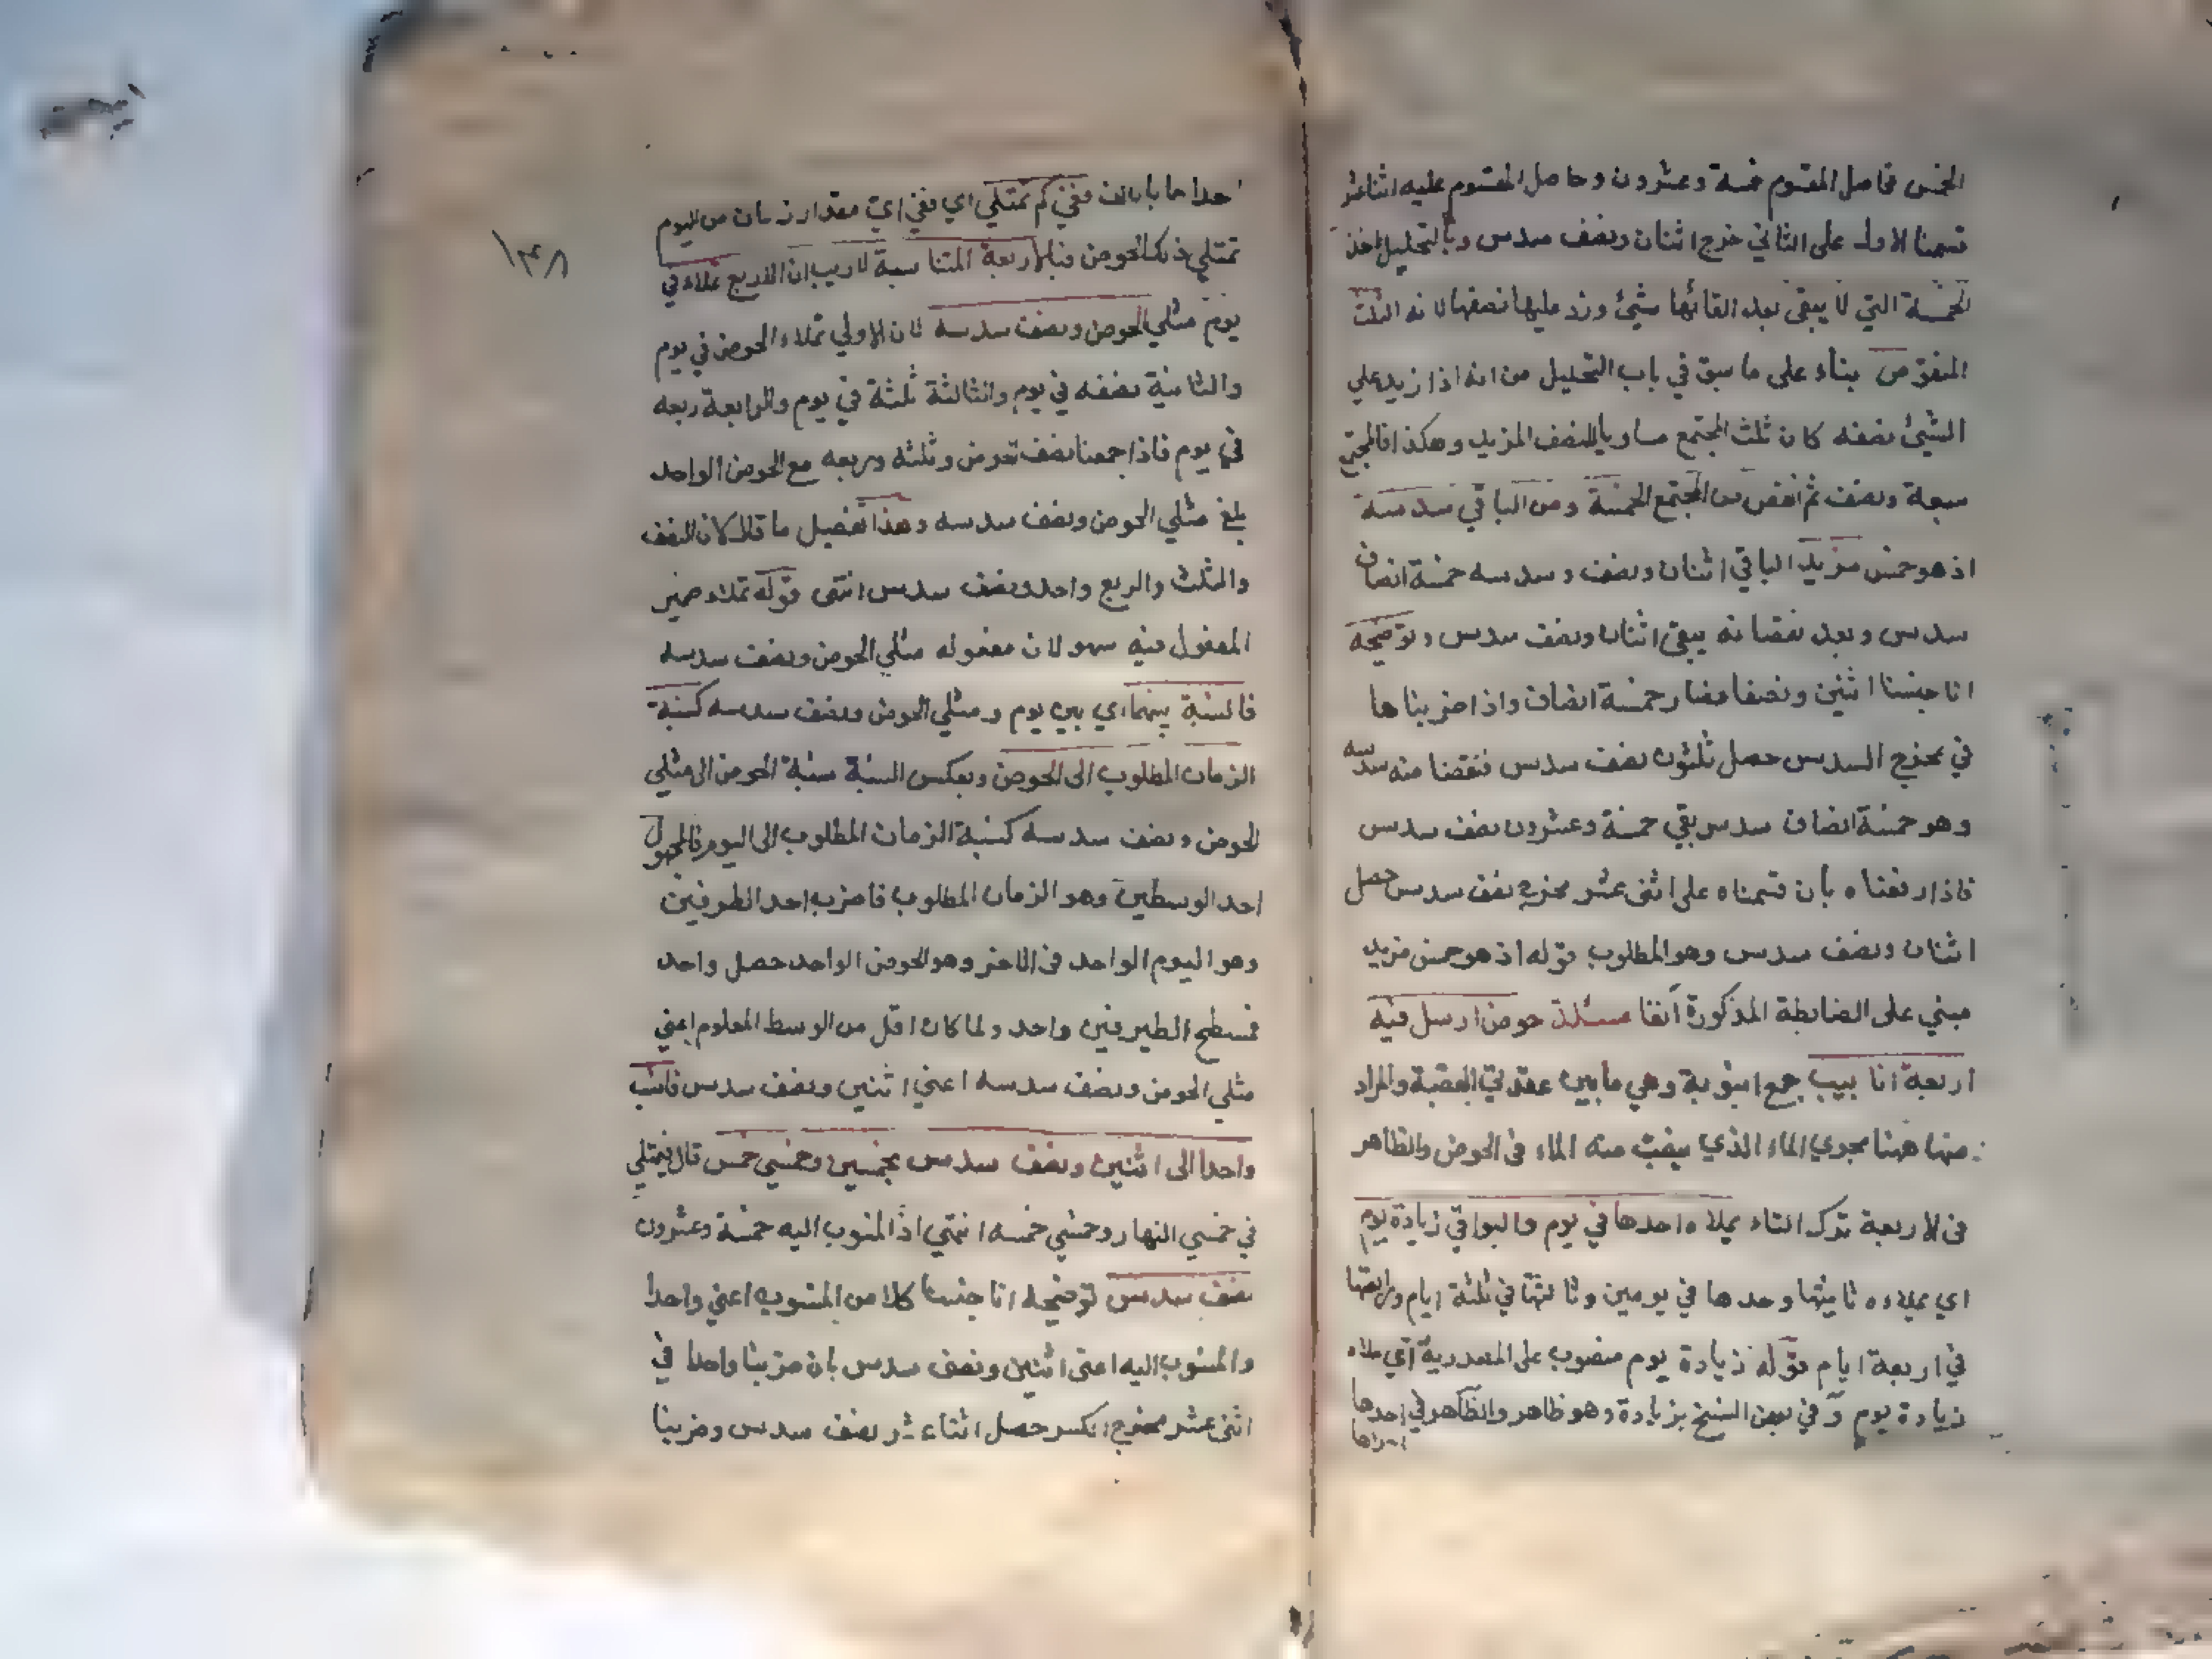 الخمس فحاصل المقسوم خمسة وعشرون وحاصل المقسوم عليه اثناعشر
قسمنا الاول على الثاني خرج اثنان ونصف سدس وبالتحليل خذ
الخمسة التي لا يبقى بعد القائها شيئ وزد عليها نصفها لانه الثلث
المنقوص بناء على ما سبق في باب التحليل من انه اذا زيد على
الشيئ نصفه كان ثلث المجتمع مساويا للنصف المزيد وهكذا فالمجتمع
سبعة ونصف ثم انقص من المجتمع الخمسة ومن الباقي سدسه
اذ هو خمس مزيد الباقي اثنان ونصف وسدسه خمسة انصاف
سدس وبعد نقصانه يبقى اثنان ونصف سدس وتوضيحه
انا جنسنا اثنين ونصفا فصار خمسة انصاف واذا ضربناها
في مخرج السدس حصل ثلثون نصف سدس فنقصنا منه سدسه
وهو خمسة انصاف سدس بقي خمسة وعشرون نصف سدس
فاذا رفعناه بأن قسمناه على اثنى عشر مخرج نصف سدس حصل
اثنان ونصف سدس وهو المطلوب قوله اذ هو خمس مزيد
مبني على الضابطة المذكورة آنفا مسئلة حوض ارسل فيه
اربعة انابيب جمع انبوبة وهي ما بين عقدتي القصبة والمراد
منها ههنا مجرى الماء الذي ينصب منه الماء في الحوض والظاهر
في لاربعة ترك التاء يملاه احدها في يوم والبواقي زيادة يوم
اي يملاءه ثانيتها وحدها في يومين وثالثتها في ثلثة ايام ورابعتها
في اربعة ايام قوله زيادة يوم منصوب على المصدرية أي ملاء
زيادة يوم وفي بعض النسخ بزيادة وهو ظاهر والظاهر في احدها
احداها
١٣٨
احداها بالالف ففي كم تمتلي اي ففي اي مقدار زمان من اليوم
تمتلي ذلك الحوض فبالاربعة المتناسبة لاريب ان الاربع تملاء في
يوم مثلي الحوض ونصف سدسه لان الاولى تملاء الحوض في يوم
والثانية نصفه في يوم والثالثة ثلثه في يوم والرابعة ربعه
في يوم فاذا جمعنا نصف حوض وثلثه وربعه مع الحوض الواحد
بلغ مثلي الحوض ونصف سدسه وهذا تفصيل ما قال لان النصف
والثلث والربع واحد ونصف سدس انتهى قوله تملاء ضمير
المفعول فيه سهو لان مفعوله مثلي الحوض ونصف سدسه
فالنسبة بينهما اي بين يوم ومثلي الحوض ونصف سدسه كنسبة
الزمان المطلوب الى الحوض وبعكس النسبة نسبة الحوض الى مثلي
الحوض ونصف سدسه كنسبة الزمان المطلوب الى اليوم فالمجهول
احد الوسطين وهو الزمان المطلوب فاضرب احد الطرفين
وهو اليوم الواحد في الاخر وهو الحوض الواحد حصل واحد
فمسطح الطرفين واحد ولما كان اقل من الوسط المعلوم اعني
مثلي الحوض ونصف سدسه اعني اثنين ونصف سدس فانسب
واحدا الى اثنين ونصف سدس بخمسين وخمسي خمس قال فيمتلي
في خمسي النهار وخمسي خمسه انتهى اذ المنسوب اليه خمسة وعشرون
نصف سدس توضيحه انا جنسنا كلا من المنسوب اعني واحدا
والمنسوب اليه اعني اثنين ونصف سدس بان ضربنا واحدا في
اثنى عشر مخرج الكسر حصل اثناعشر نصف سدس وضربنا